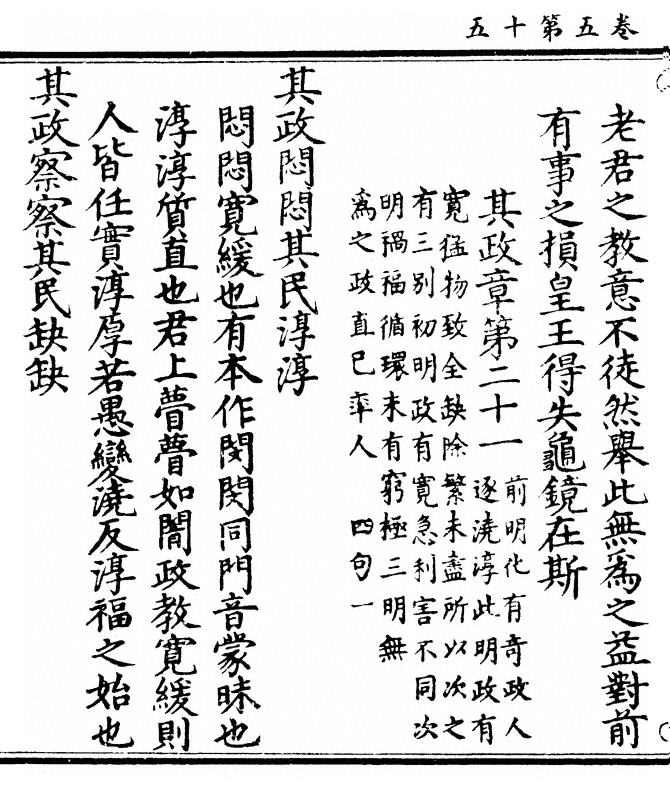 卷五第十五
老君之教意不徒然舉此無為之益對前
有事之損皇王得失龜鏡在斯
其政章第二十一
前明化有奇政人
逐澆淳此明政有
寬猛物致全缺除繁未盡所以次之
有三別初明政有寬急利害不同次
明禍福循環末有窮極三明無
為之政直巳率人 四句一
其政悶悶其民淳淳
悶悶寬緩也有本作閔閔同門音蒙昧也
淳淳質直也君上瞢瞢如闇政教寬緩則
人皆任實淳厚若愚變澆反淳福之始也
其政察察其民缺缺